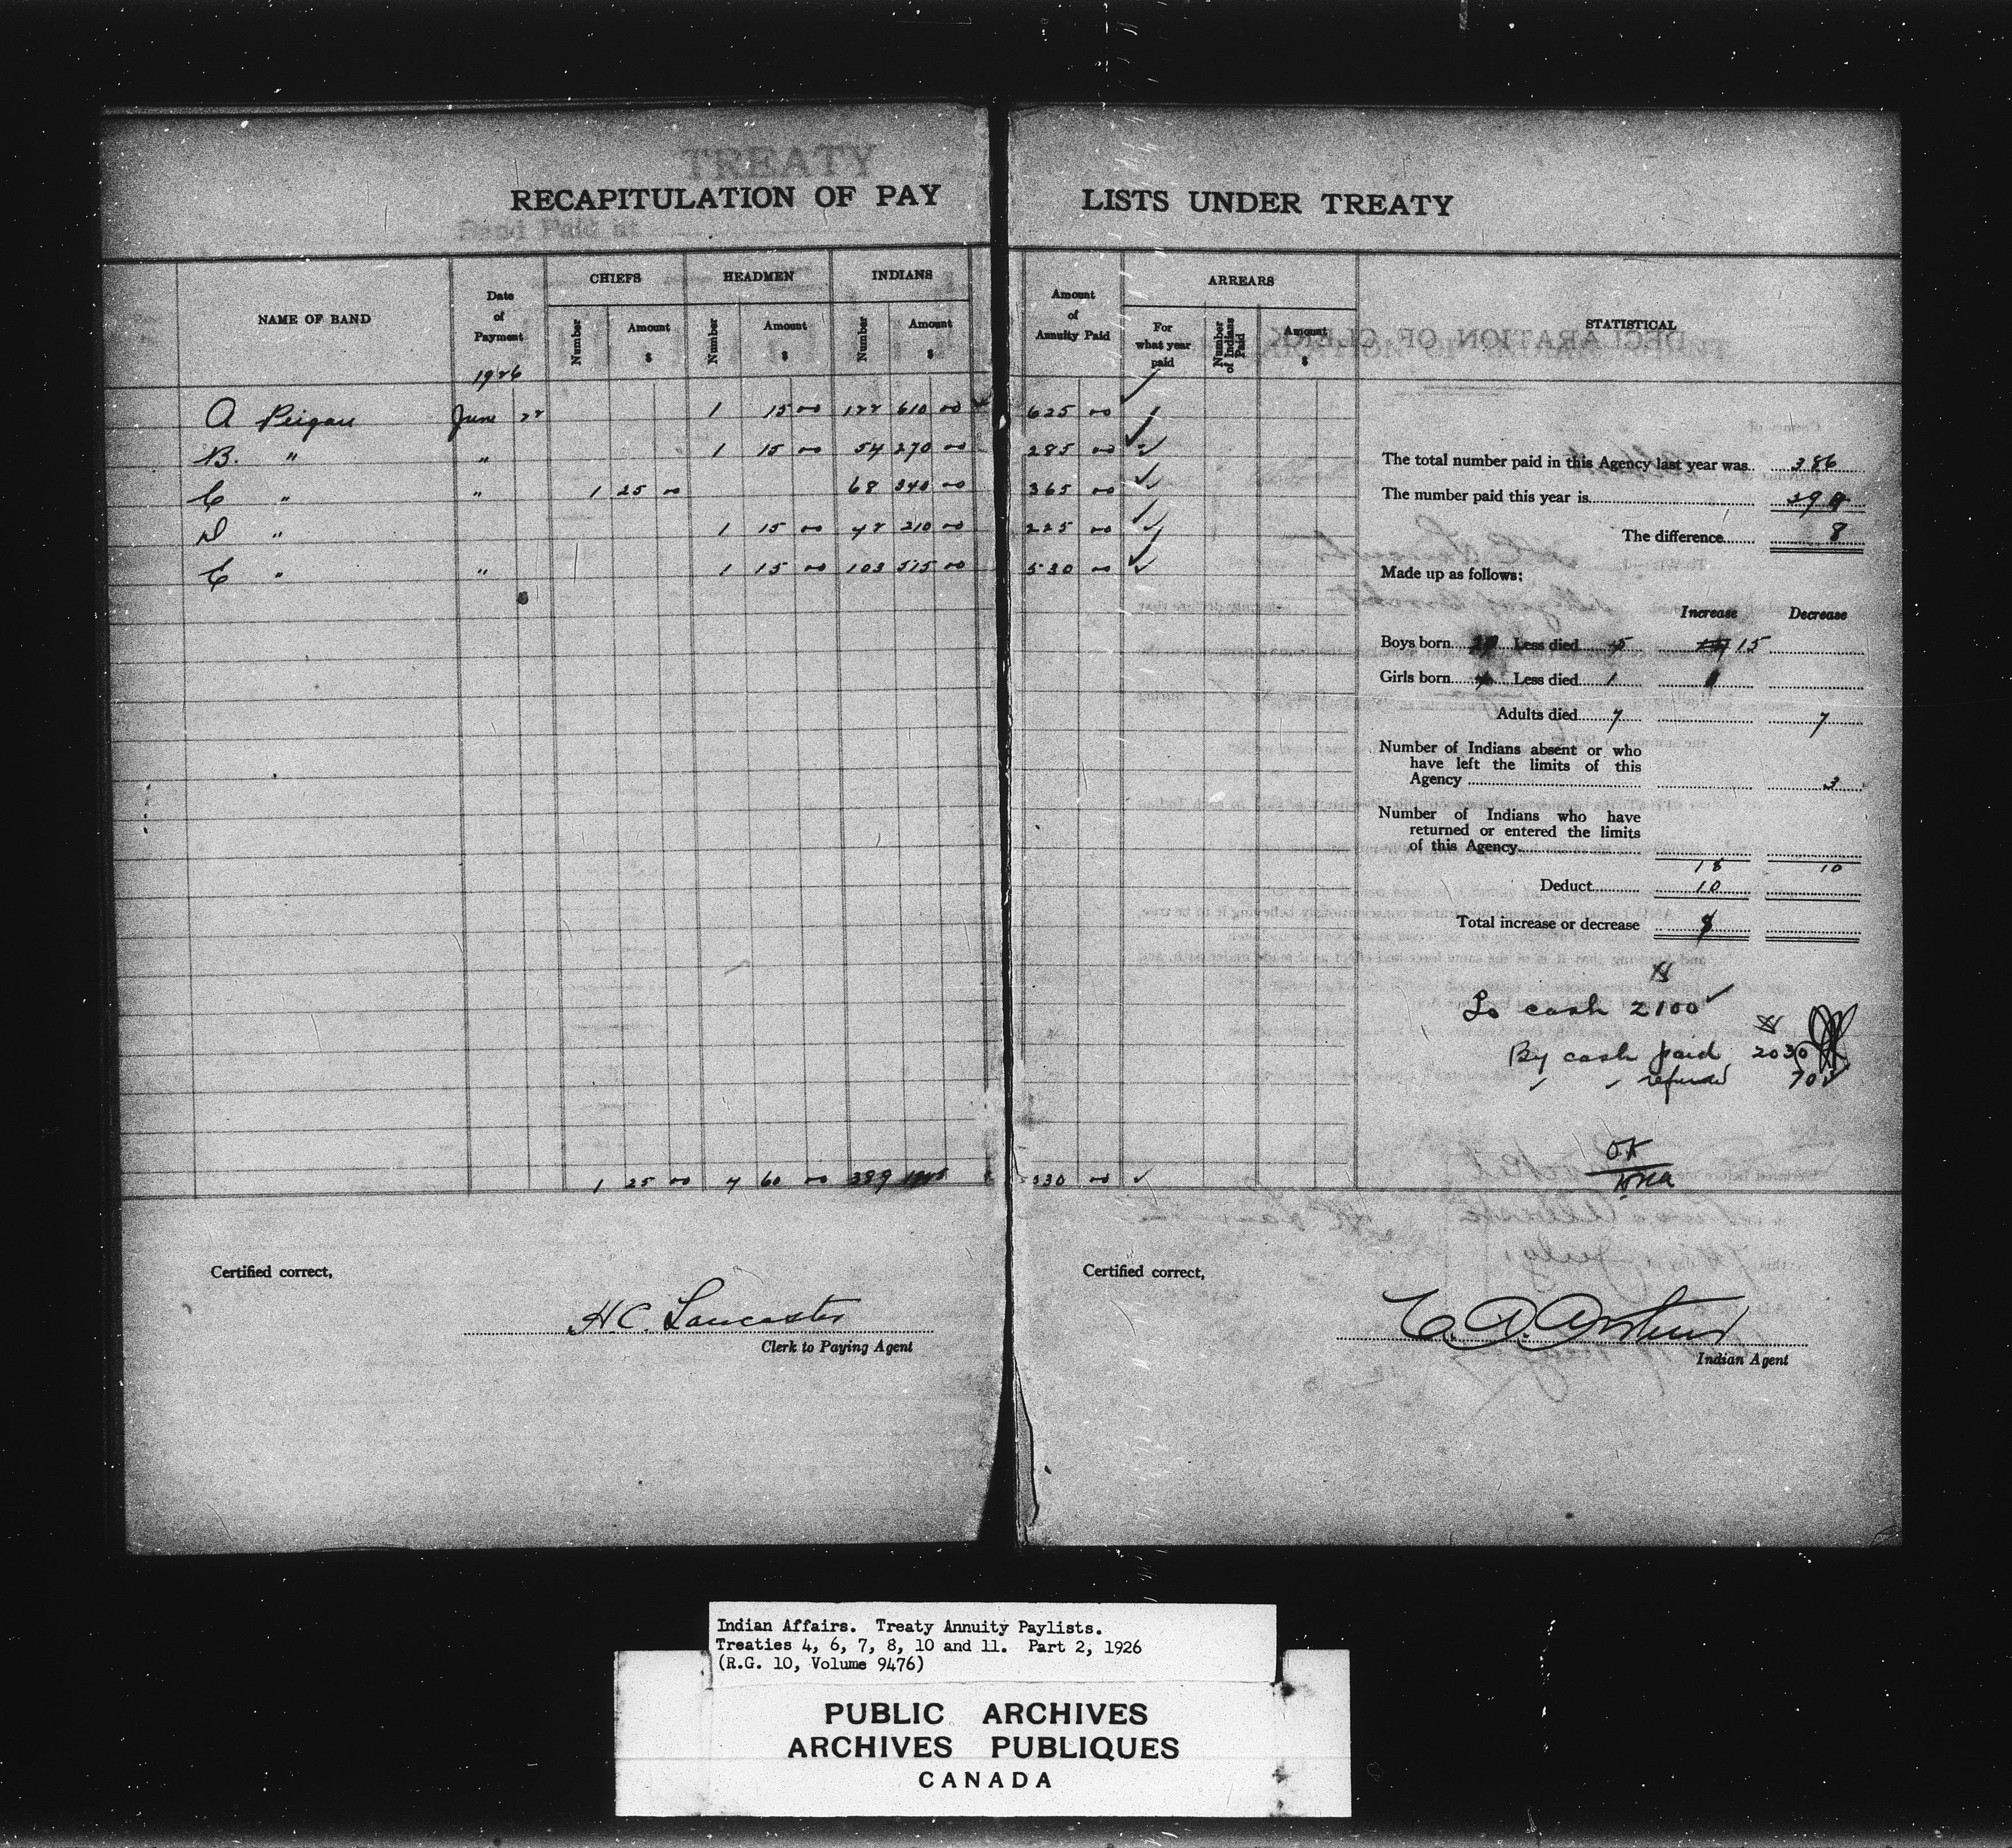 TREATY
RECAPITULATION OF PAY LISTS UNDER TREATY
Band Paid at
NAME OF BAND
Date of Payment
CHIEFS
HEADMEN
INDIANS
Number Amount $ Number Amount $ Number Amount $
Amount of Annuity Paid
ARREARS
For what year paid
Number of Indians Paid
Amount $
STATISTICAL
DECLARATION OF CLERK
1926
A Peigan June 22 1 15 00 122 610 00 625 00
B. " " 1 15 00 54 270 00 285 00
C " " 1 25 00 68 340 00 365 00
D " 1 15 00 42 210 00 225 00
E " " 1 15 00 103 515 00 530 00
1 25 00 4 60 00 389 030 00
The total number paid in this Agency last year was 386
The number paid this year is 394
The difference 8
Made up as follows:
Increase Decrease
Boys born Less died 5 15
Girls born Less died 1
Adults died 7 7
Number of Indians absent or who
have left the limits of this
Agency 3
Number of Indians who have
returned or entered the limits
of this Agency
18 10
Deduct 10
Total increase or decrease 8
To cash 2100
By cash paid 2030
" " refund 70
OK
Certified correct,
H.C. Lancaster
Clerk to Paying Agent
Certified correct,
Indian Agent
Indian Affairs. Treaty Annuity Paylists.
Treaties 4, 6, 7, 8, 10 and 11. Part 2, 1926
(R.G. 10, Volume 9476)
PUBLIC ARCHIVES
ARCHIVES PUBLIQUES
CANADA